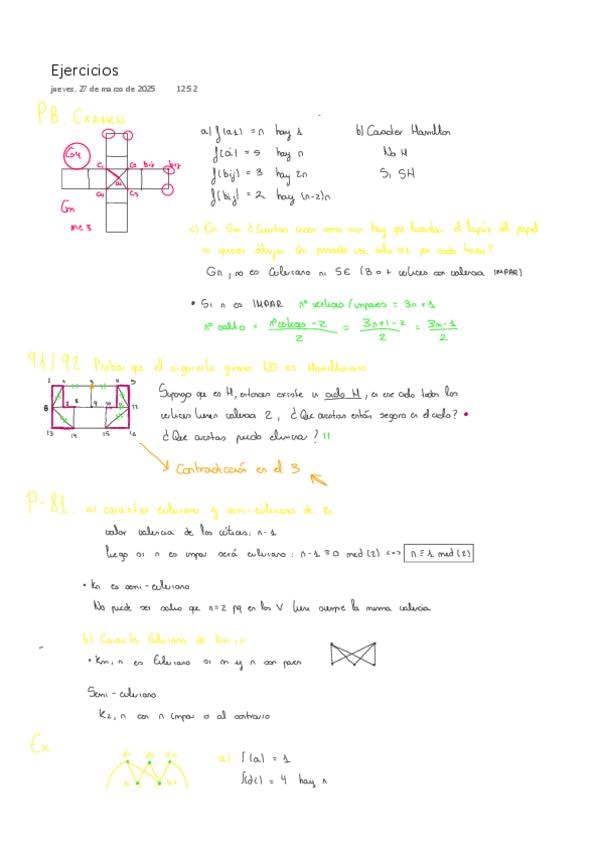 Ejercicios
jueves, 27 de marzo de 2025 12:52
PB. EXAMEN
a) f(a1) = n hay 1
f(ai) = 5 hay n
f(bij) = 3 hay 2n
f(bij) = 2 hay (n-2)n
b) Caracter Hamilton
No H
Si SH
G4
Gn
n≥3
c) En Gn ¿Cuantas veces como min hay que levantar el lapiz del papel
si quieres dibujar Gn pasando una sola vez por cada arista?
Gn, no es Euleriano ni SE (3 o + vertices con valencia IMPAR)
• Si n es IMPAR nº vertices impares = 3n+1
nº saltos = nº vertices - 2 / 2 = 3n+1-2 / 2 = 3n-1 / 2
91/92 Probar que el siguiente grafo NO es Hamiltoniano
Supongo que es H, entonces existe un ciclo H, en ese ciclo todos los
vertices tienen valencia 2, ¿Que aristas están seguro en el ciclo? •
¿Que aristas puedo eliminar? 11
Contradicción en el 3
P-81. a) caracter euleriano y semi-euleriano de Kn
valor valencia de los vértices: n-1
luego si n es impar será euleriano: n-1 ≡ 0 mod (2) <-> n ≡ 1 mod (2)
• Kn es semi-euleriano
No puede ser salvo que n=2 pq en los V tiene siempre la misma valencia
b) Caracter Euleriano de Km,n
• Km,n es Euleriano si m y n son pares
Semi-euleriano
K2,n con n impar o al contrario
Ex
a) f(a) = 1
hay n